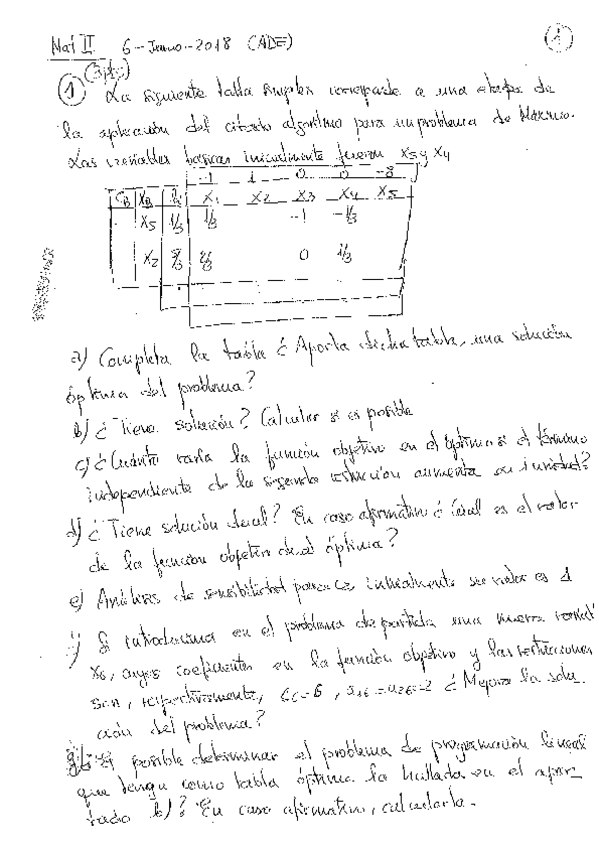 Mat II 6-Junio-2018 (ADE) 1
(3 pts)
1 La siguiente tabla simplex corresponde a una etapa de
la aplicación del citado algoritmo para un problema de Máximo.
Las variables básicas inicialmente fueron x5 y x4
-1 1 0 0 -8
CB XB x1 x2 x3 x4 x5
x5 1/3 1/3 -1 -1/3
x2 8/3 2/3 0 1/3
a) Completa la tabla ¿Aporta dicha tabla, una solución
óptima del problema?
b) ¿Tiene solución? Calcular si es posible
c) ¿Cuánto varía la función objetivo en el óptimo si el término
independiente de la segunda restricción aumenta su unidad?
d) ¿Tiene solución dual? En caso afirmativo ¿Cuál es el valor
de la función objetivo dual óptima?
e) Análisis de sensibilidad para c2 inicialmente su valor es 1
Si introducimos en el problema de partida una nueva variable
x6, cuyos coeficientes en la función objetivo y las restricciones
son, respectivamente, c6=6, a16=a26=2 ¿Mejora la solu-
ción del problema?
g) Es posible determinar el problema de programación lineal
que tenga como tabla óptima la hallada en el apar-
tado b)? En caso afirmativo, calcularlo.